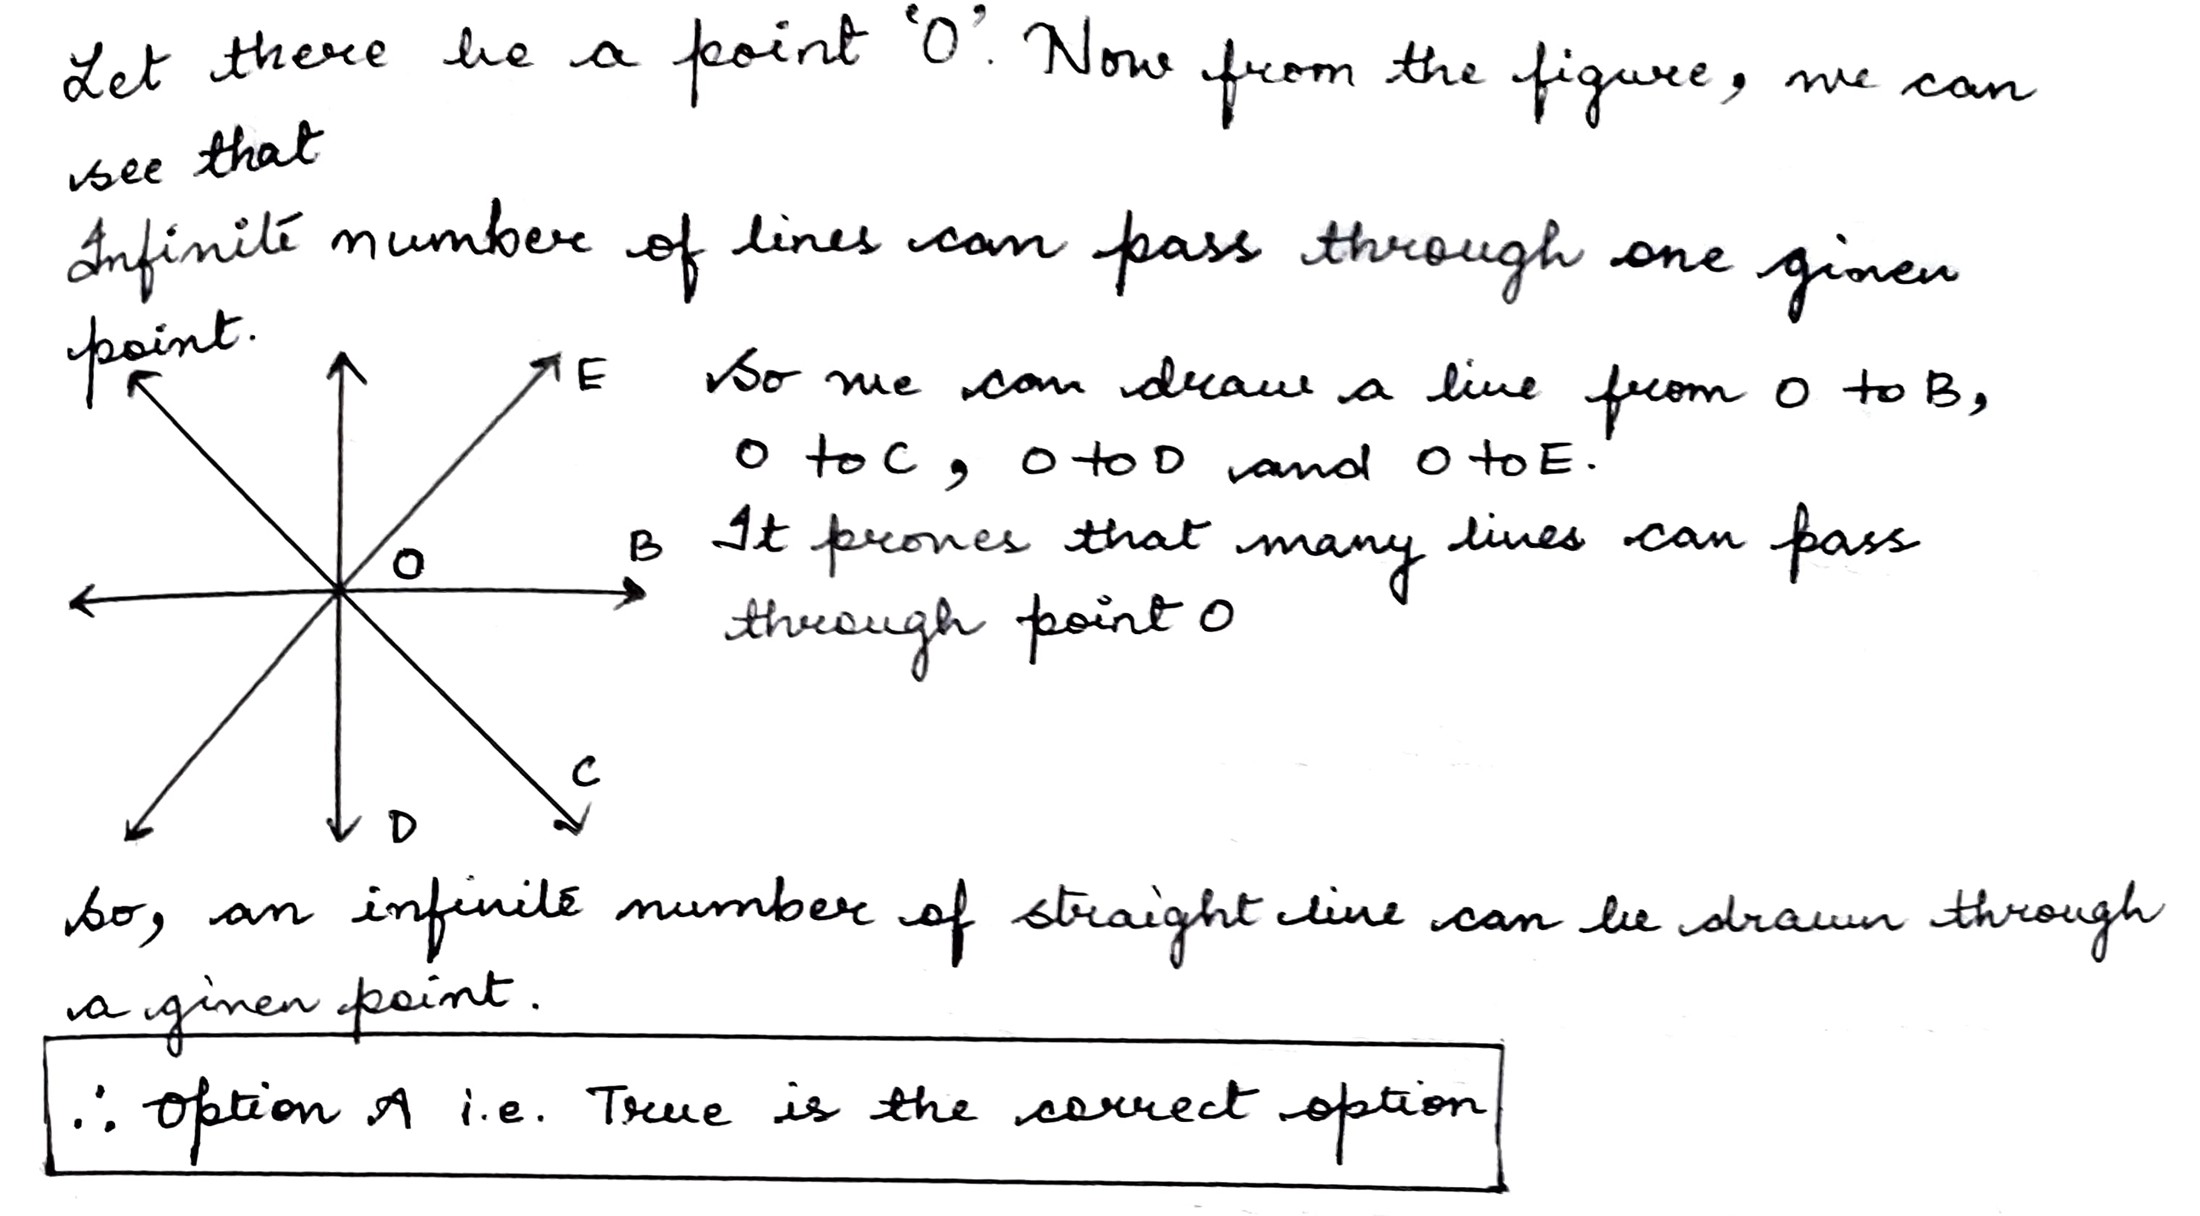 Let there be a point 'O'. Now from the figure, we can
see that
Infinite number of lines can pass through one given
point.
E
So we can draw a line from O to B,
O to C, O to D and O to E.
O
B
It proves that many lines can pass
through point O
C
D
so, an infinite number of straight line can be drawn through
a given point.
∴ option A i.e. True is the correct option